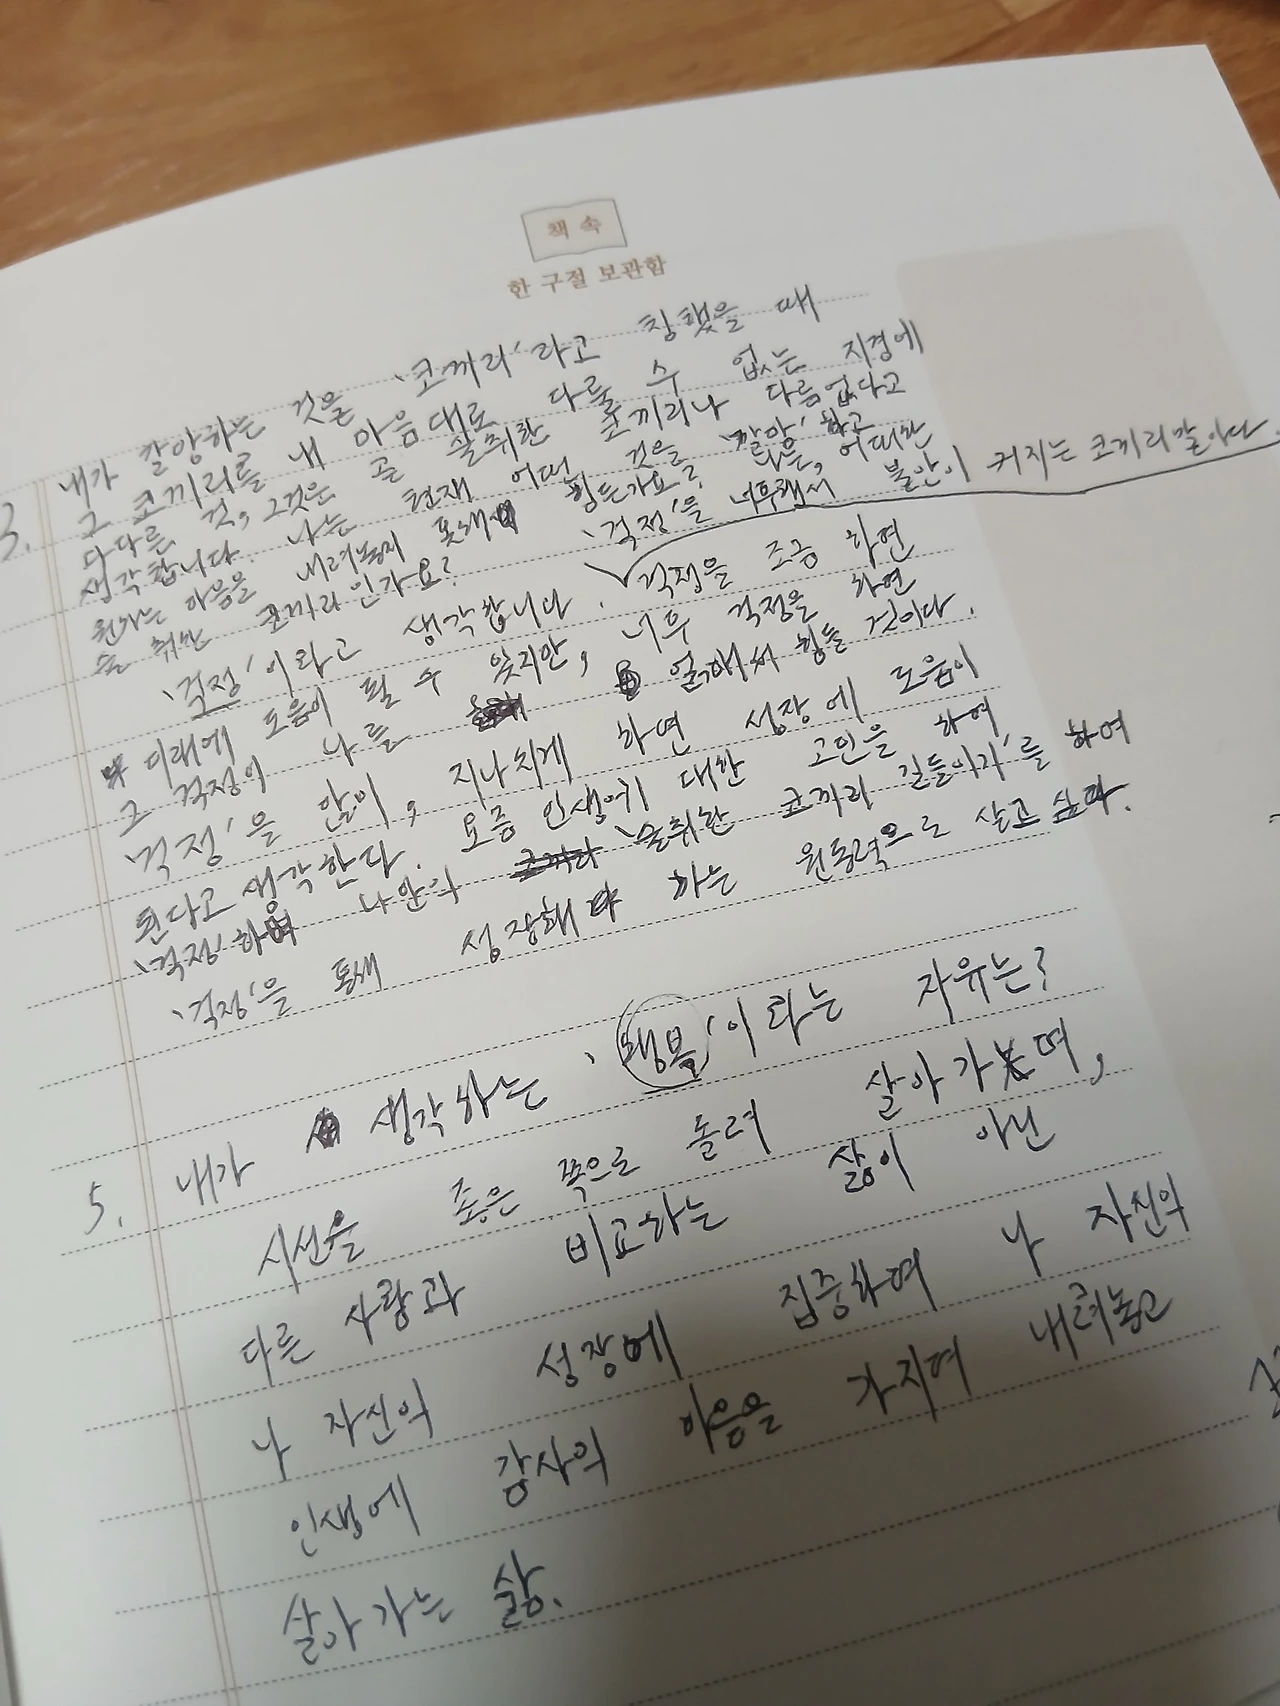 책 속
한 구절 보관함
3. 내가 갈망하는 것을 '코끼리'라고 칭했을 때
그 코끼리를 내 마음대로 다룰 수 없는 지경에
다다른 것, 그것은 곧 술취한 코끼리나 다름없다고
생각합니다. 나는 현재 어떤 것을 '갈망'하고
원하는 마음을 내려놓지 못해 힘든가요? 나는, 어떠한
술 취한 코끼리인가요? '걱정'을 너무해서 불안이 커지는 코끼리같아다.
'걱정'이라고 생각합니다. 걱정을 조금 하면
미래에 도움이 될 수 있지만, 너무 걱정을 하면
그 걱정이 나를 얽매해서 힘들 것이다.
걱정'을 많이, 지나치게 하면 성장에 도움이
된다고 생각한다. 요즘 인생에 대한 고민을 하여
'걱정'하여 나만의 '술취한 코끼리 길들이기'를 하여
'걱정'을 통해 성장해 하는 원동력으로 살고 싶다.
5. 내가 생각하는 '행복'이라는 자유는?
시선을 좋은 쪽으로 돌려 살아가며,
다른 사람과 비교하는 삶이 아닌
나 자신의 성장에 집중하여 나 자신의
인생에 감사의 마음을 가지며 내려놓고
살아가는 삶.